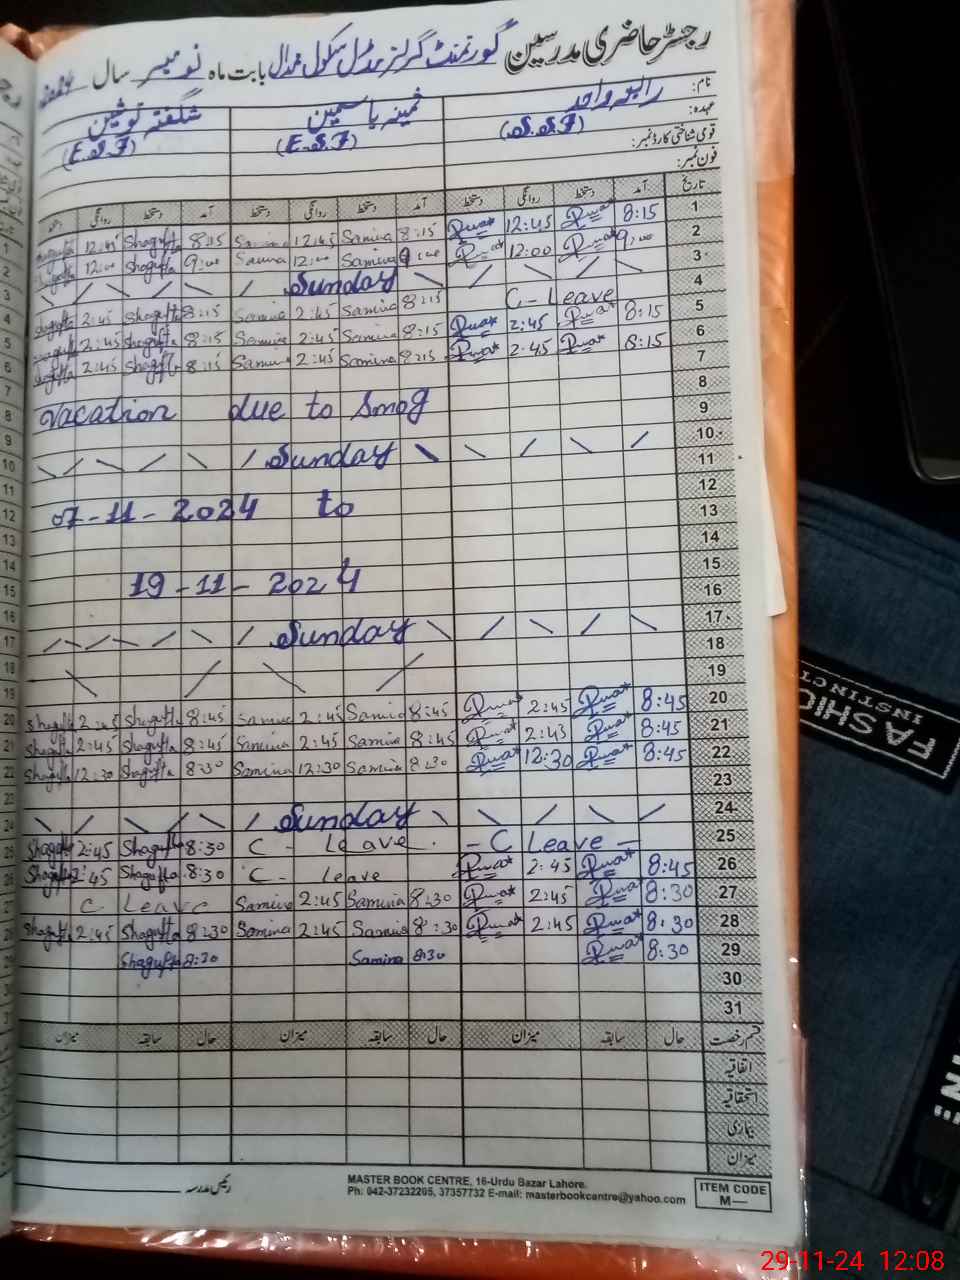 رجسٹر حاضری مدرسین گورنمنٹ گرلز مڈل سکول بابت ماہ نومبر سال
نام: رابعہ واحد ثمینہ یاسمین شگفتہ نوشین
عہدہ: (S.S.T) (E.S.T) (E.S.T)
قومی شناختی کارڈ نمبر:
فون نمبر:
تاریخ آمد دستخط روانگی دستخط آمد دستخط روانگی دستخط آمد دستخط روانگی دستخط
1 8:15 12:45 8:15 Samina 12:45 Samina 8:15 Shagufta 12:45 Shagufta
2 9:00 12:00 9:00 Samina 12:00 Samina 9:00 Shagufta 12:00 Shagufta
3 Sunday
4 C-Leave 8:15 Samina 2:45 Samina 8:15 Shagufta 2:45 Shagufta
5 8:15 2:45 8:15 Samina 2:45 Samina 8:15 Shagufta 2:45 Shagufta
6 8:15 2:45 8:15 Samina 2:45 Samina 8:15 Shagufta 2:45 Shagufta
7
8 Vacation due to Smog
9
10 Sunday
11
12 07-11-2024 to
13
14
15 19-11-2024
16
17 Sunday
18
19
20 8:45 2:45 8:45 Samina 2:45 Samina 8:45 Shagufta 2:45 Shagufta
21 8:45 2:45 8:45 Samina 2:45 Samina 8:45 Shagufta 2:45 Shagufta
22 8:45 12:30 8:30 Samina 12:30 Samina 8:30 Shagufta 12:30 Shagufta
23
24 Sunday
25 - C Leave - C - Leave. 8:30 Shagufta 2:45 Shagufta
26 8:45 2:45 C - Leave 8:30 Shagufta 2:45 Shagufta
27 8:30 2:45 8:30 Samina 2:45 Samina C Leave
28 8:30 2:45 8:30 Samina 2:45 Samina 8:30 Shagufta 2:45 Shagufta
29 8:30 8:30 Samina 8:30 Shagufta
30
31
قسم رخصت حال سابقہ میزان حال سابقہ میزان حال سابقہ میزان
اتفاقیہ
استحقاقیہ
بیماری
میزان
رئیس مدرسہ
MASTER BOOK CENTRE, 16-Urdu Bazar Lahore.
Ph: 042-37232205, 37357732 E-mail: masterbookcentre@yahoo.com
ITEM CODE
M—
FASHION
INSTINCT
29-11-24 12:08